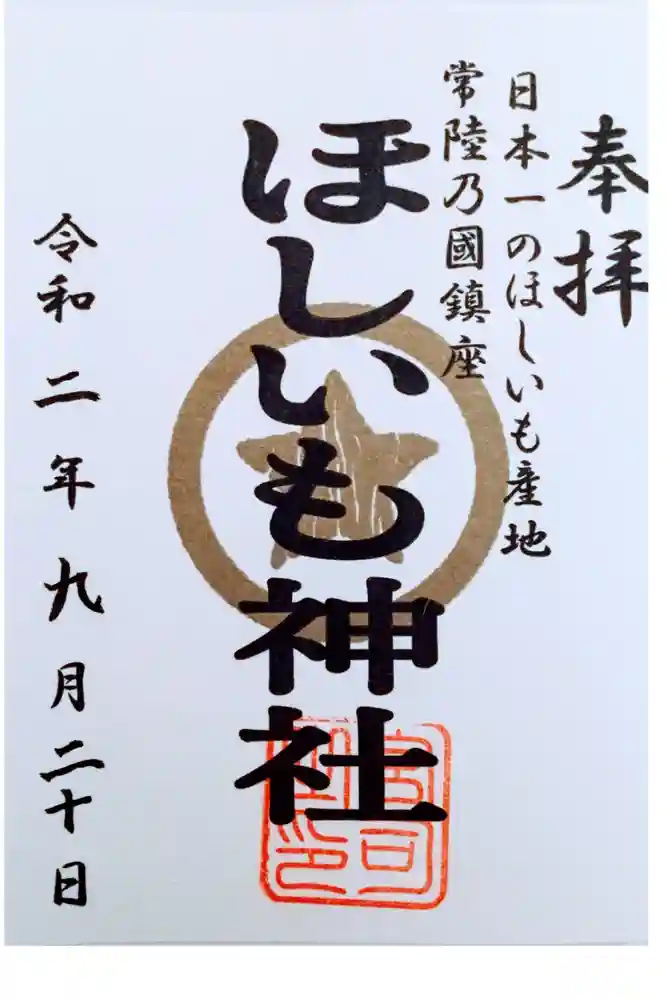 奉拝
日本一のほしいも産地
常陸乃國鎮座
ほしいも神社
令和二年九月二十日